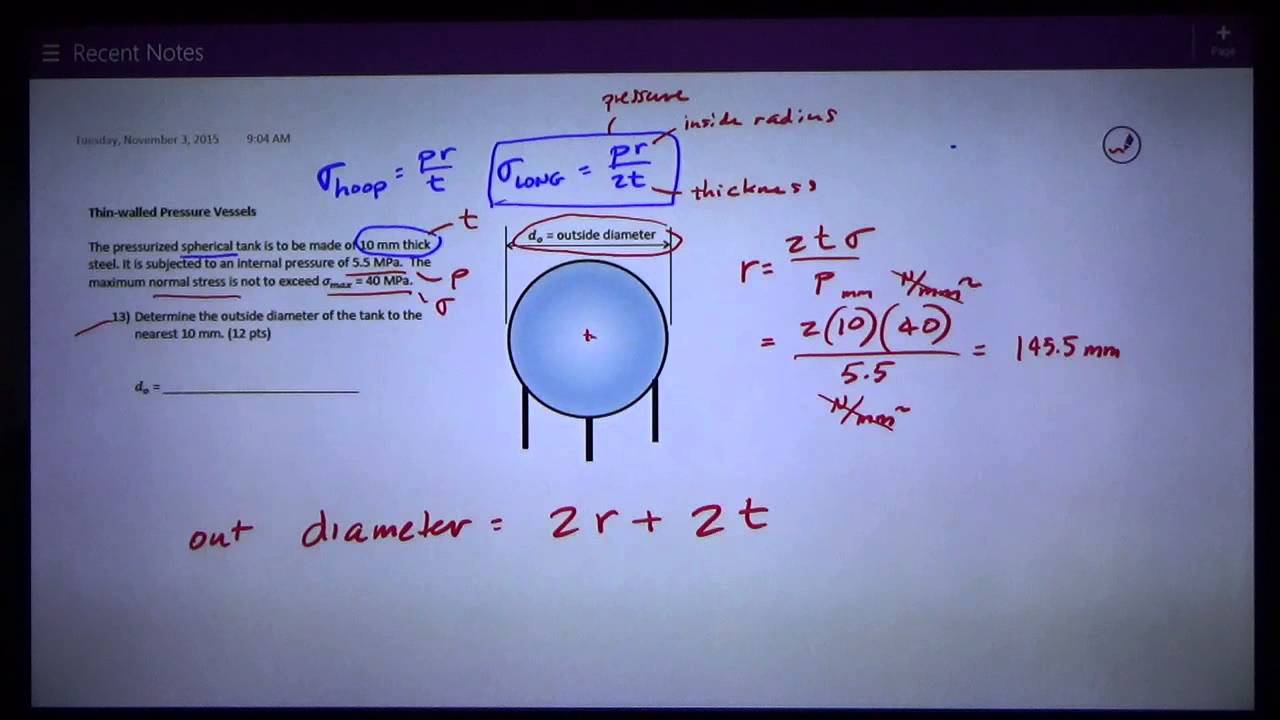 Recent Notes
Page
Tuesday, November 3, 2015 9:04 AM
pressure
inside radius
σhoop = pr/t
σLONG = pr/2t
thickness
Thin-walled Pressure Vessels
t
The pressurized spherical tank is to be made of 10 mm thick
steel. It is subjected to an internal pressure of 5.5 MPa. The
maximum normal stress is not to exceed σmax = 40 MPa.
p
σ
13) Determine the outside diameter of the tank to the
nearest 10 mm. (12 pts)
do =
do = outside diameter
r = 2tσ/P
mm N/mm²
= 2(10)(40)/5.5 = 145.5 mm
N/mm²
out diameter = 2r + 2t